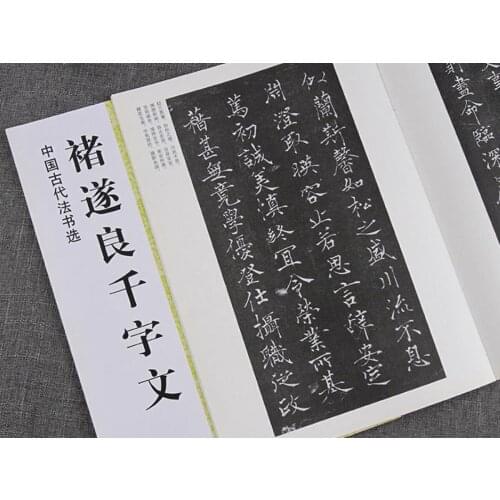 中国古代法书选
褚遂良千字文
則盡命臨深
似蘭斯馨如松之盛川流不息
淵澄取暎容止若思言辭安定
篤初誠美慎終冝令榮業所基
藉甚無竟學優登仕攝職從政